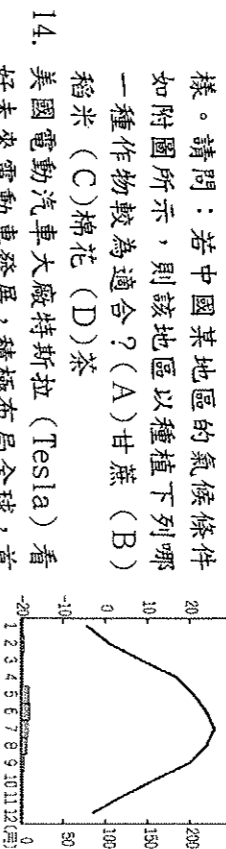 樣。請問：若中國某地區的氣候條件
如附圖所示，則該地區以種植下列哪
一種作物較為適合？(A)甘蔗 (B)
稻米 (C)棉花 (D)茶
14. 美國電動汽車大廠特斯拉 (Tesla) 看
好未來電動車發展，積極布局全球，首
20
10
0
-10
-20
100
50
0
1 2 3 4 5 6 7 8 9 10 11 12(月)